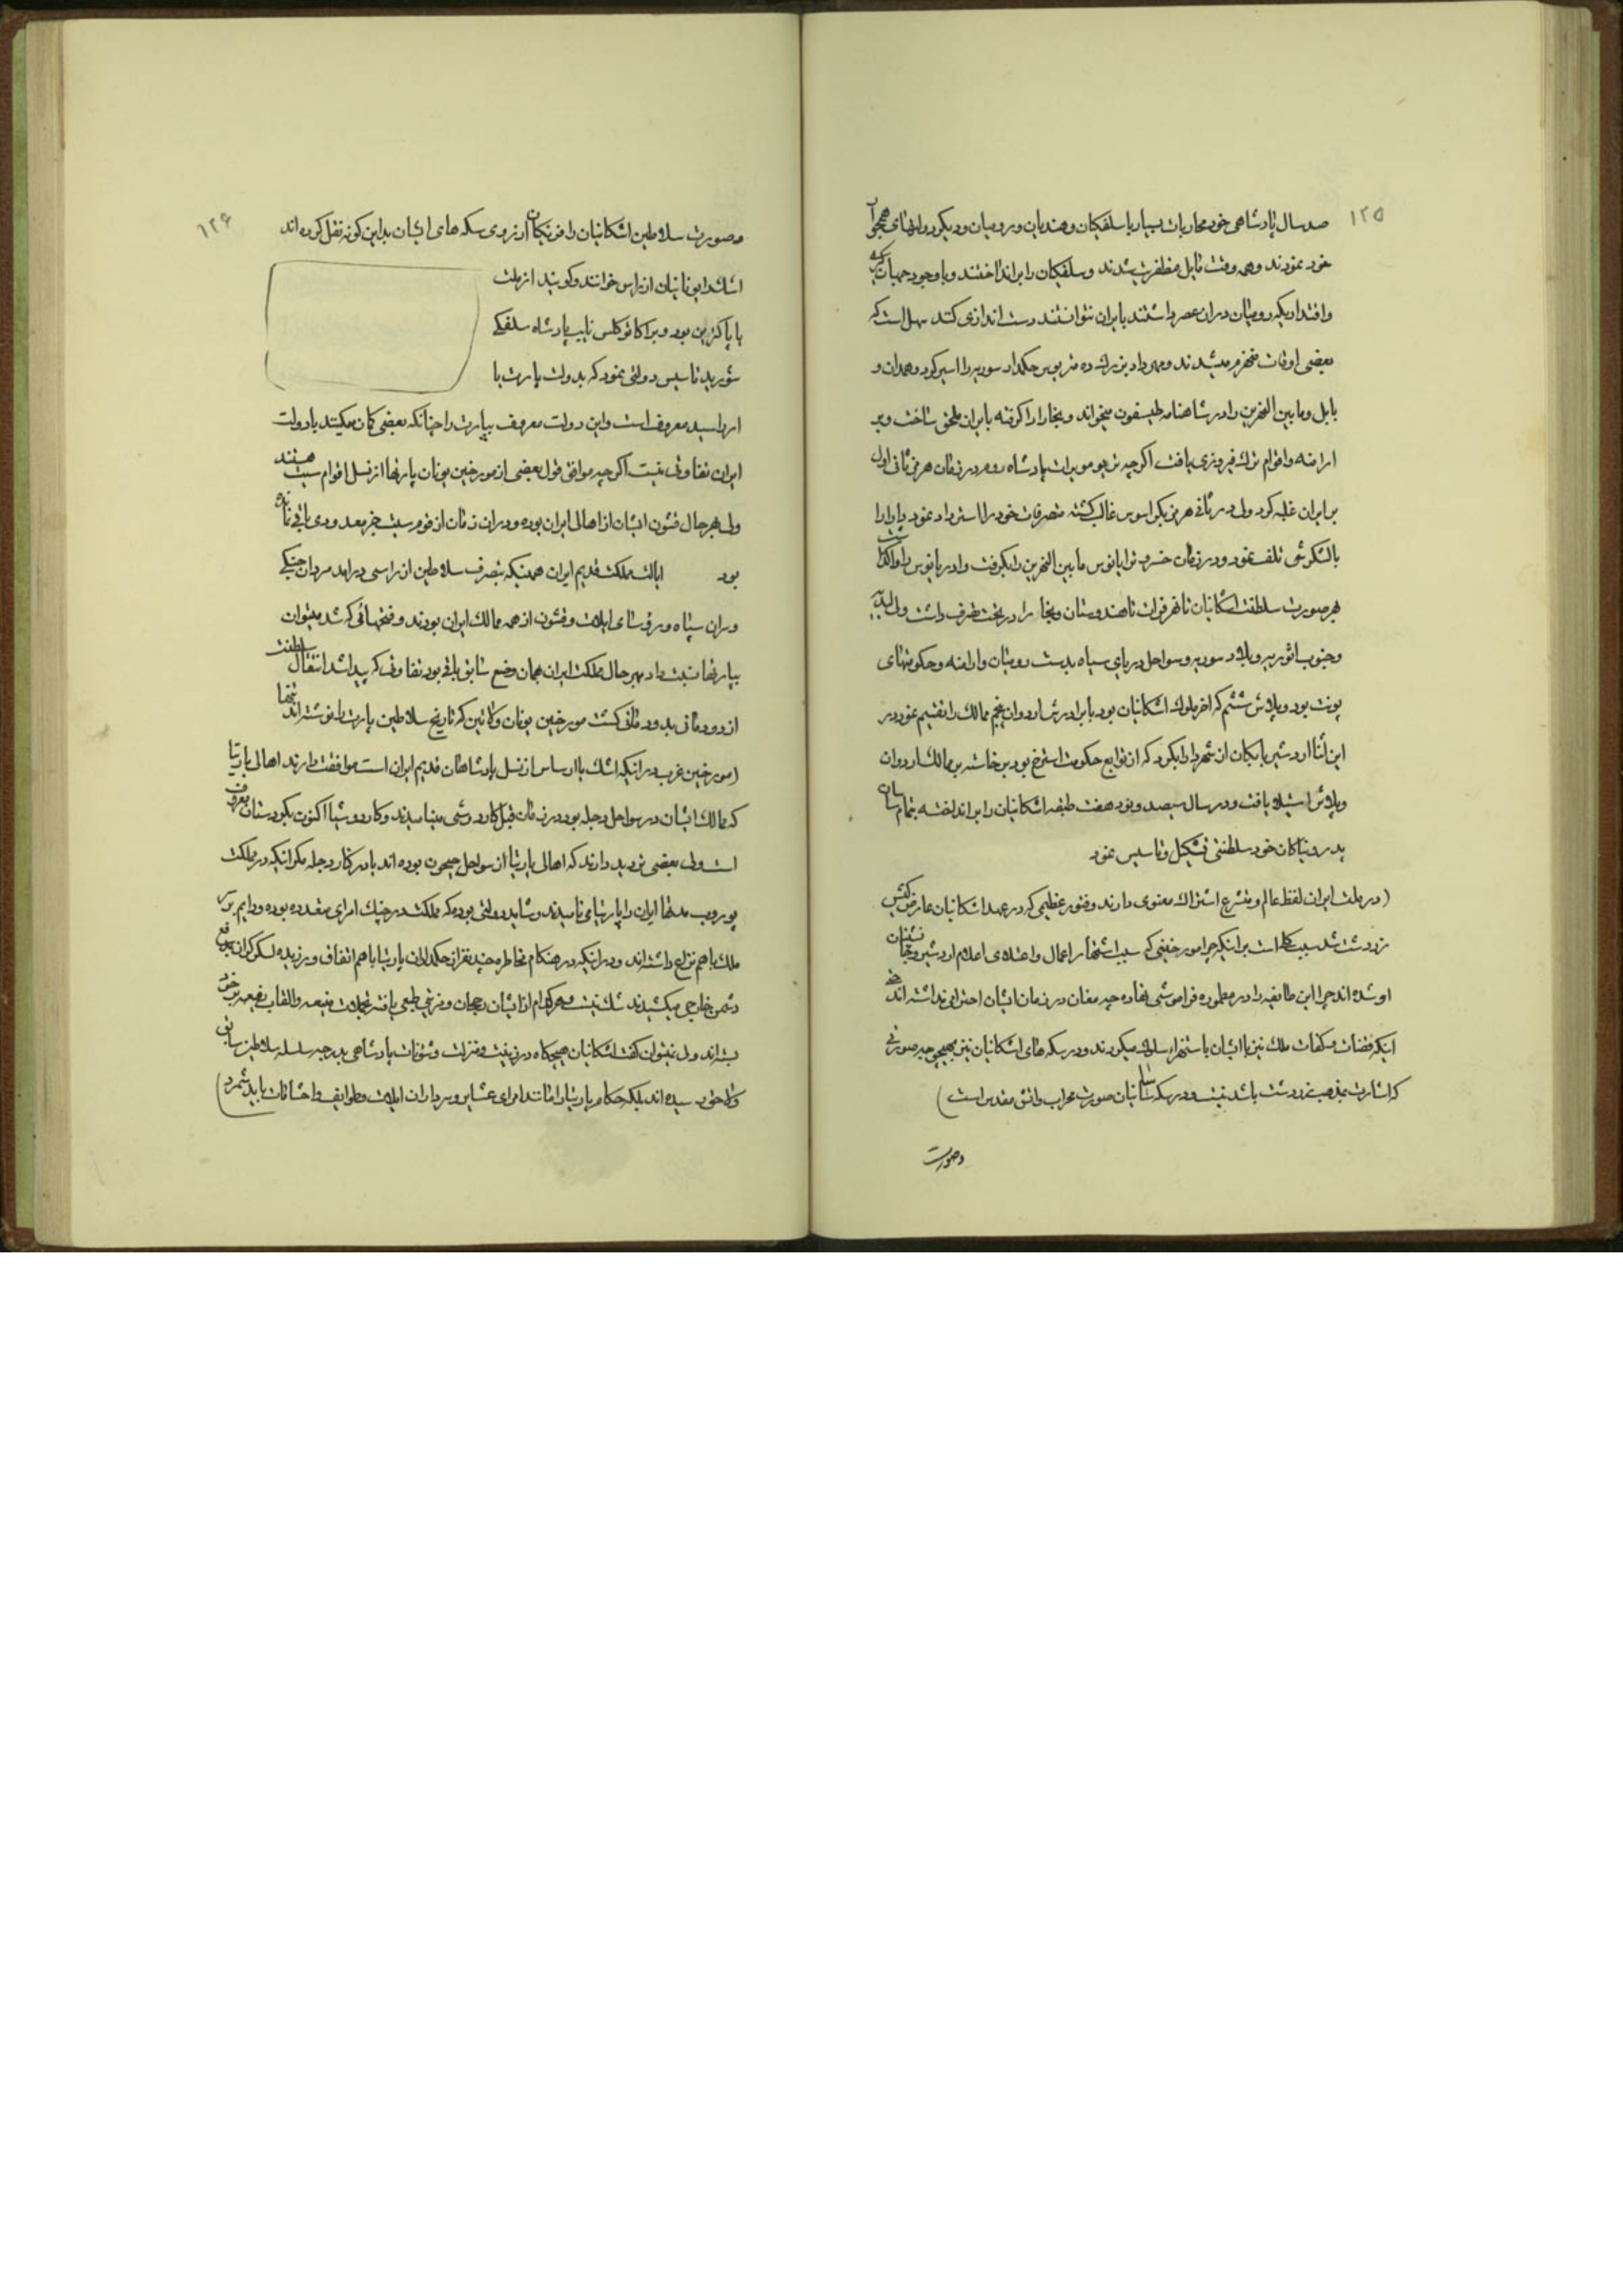 ۱۲۵
صد سال پادشاهی خود محاربات بسیار با سلفکیان و هندیان و رومیان و دیگر دولتهای همجوار
خود نمودند و همه وقت نایل مظفریت شدند و سلفکیان را برانداختند و با وجود جهانگیری
و اقتداریکه رومیان دران عصر داشتند بایران نتوانستند دست اندازی کنند سهل است که
بعضی اوقات منهزم میشدند و مهرداد حکمدار سوریه را اسیر کرد و همدان و
بابل و مابین النهرین را در شاهنامه طیسفون میخواند و بخارا را گرفته بایران ملحق ساخت و بر
ارامنه و اقوام ترک فیروزی یافت اگرچه پادشاه روم در زمان هرمز ثانی اول
بر ایران غلبه کرد ولی غالب گشته متصرفات خود را استرداد نمود
با لشکرش تلف نمود و در زمان خسرو ترایانوس مابین النهرین را بگرفت
بهر صورت سلطنت اشکانیان تا نهر فرات تا هندوستان و بخارا در تحت تصرف داشت ولی
و جنوب سوریه و سواحل دریای سیاه بدست رومیان و ارامنه و حکومتهای
پونت بود و پلاش ششم که آخر ملوک اشکانیان بود با برادرش اردوان پنجم ممالک را تقسیم نمود در
این اثنا اردشیر بابکان از شهر دارابگرد که از توابع حکومت استرخ بود برخاسته بر ممالک اردوان
و پلاش استیلا یافت و در سال سیصد و نود هفت طبقه اشکانیان را برانداخته بنام ساسان
پدر و نیاکان خود سلطنتی تشکیل و تاسیس نمود
(در ملت ایران لفظ عالم و متشرع اشتراک معنوی دارند و فتور عظیمی که در عهد اشکانیان عارض کیش
زردشت شد سبب کلی است بر اینکه چرا مورخینی که سبب اشتهار اعمال و اعتلای اعلام اردشیر و جانشینان
او شده اند چرا این طایفه را در معموره فراموشی نهاده چه مغان در زمان ایشان احترامی نداشته اند حتی
اینکه قضات ملک نیز با ایشان باستهزاء سلوک میکردند و در سکه های اشکانیان نیز بهیچوجه صورتی
که اشارت بمذهب زردشت باشد نیست و در سکه ساسانیان صورت محراب و آتش مقدس است)
و صورت
۱۲۶
و صورت سلاطین اشکانیان را فرنگیان از روی سکه های ایشان بداین گونه نقل کرده اند
اشک را یونانیان ارزاس خوانند و گویند از ملت
بود و برآگاثوکلس نایب پادشاه سلفکی
شورید تاسیس دولتی نمود که بدولت پارت یا
ارزاسید معروف است و این دولت معروف بپارت را چنانکه بعضی گمان میکنند با دولت
ایران تفاوتی نیست اگرچه موافق قول بعضی از مورخین یونان پارتها از نسل اقوام سیت هستند
ولی بهرحال قشون ایشان از اهالی ایران بوده و دران زمان از قوم سیت جز معدودی باقی نمانده
بود ایالت مملکت قدیم ایران همینکه بتصرف سلاطین ارزاسی درآمد مردان جنگی
و سران سپاه و رؤسای ایلات و قشون از همه ممالک ایران بودند و فتحهائی که شد میتوان
بپارتها نسبت داد بهرحال مملکت ایران همان وضع سابق باقی بود تفاوتی که پیدا شد انتقال سلطنت
از دودمانی بدودمانی گشت مورخین یونان و لاتین که تاریخ سلاطین پارت را نوشته اند تنها
(مورخین غرب در اینکه اشک یا ارساس از نسل پادشاهان قدیم ایران است موافقت دارند اهالی پارتیا
که ممالک ایشان در سواحل دجله بود در زمان قبل کاردوشی مینامیدند و کاردوشیا اکنون بکردستان معروف
است ولی بعضی تردید دارند که اهالی پارتیا از سواحل جیحون بوده اند یا در کنار دجله مگر اینکه در مملکت
یوروپ مدتها ایران را پارتیا می نامیدند و شاید دولتی بوده که مملکت در چنگ امرای متعدده بوده و دایم بر سر
ملک باهم نزاع داشته اند و در اینکه در هنگام مخاطره چند نفر از حکمداران پارتیا باهم اتفاق ورزیده لشکر گران بدفع
دشمن خارجی میکشیدند شک نیست و هر کدام از ایشان رجحان و مزیتی طبعی یافته تجملات منیعه و القاب رفیعه بر خود
بسته اند ولی نمیتوان گفت اشکانیان هیچگاه در زینت و منزلت و شئونات پادشاهی بدرجه سلسله سلاطین ساسانی
رسیده اند بلکه حکام پارتیا را مانند امرای عشایر و سرداران ایلات و طوایف باید شمرد)